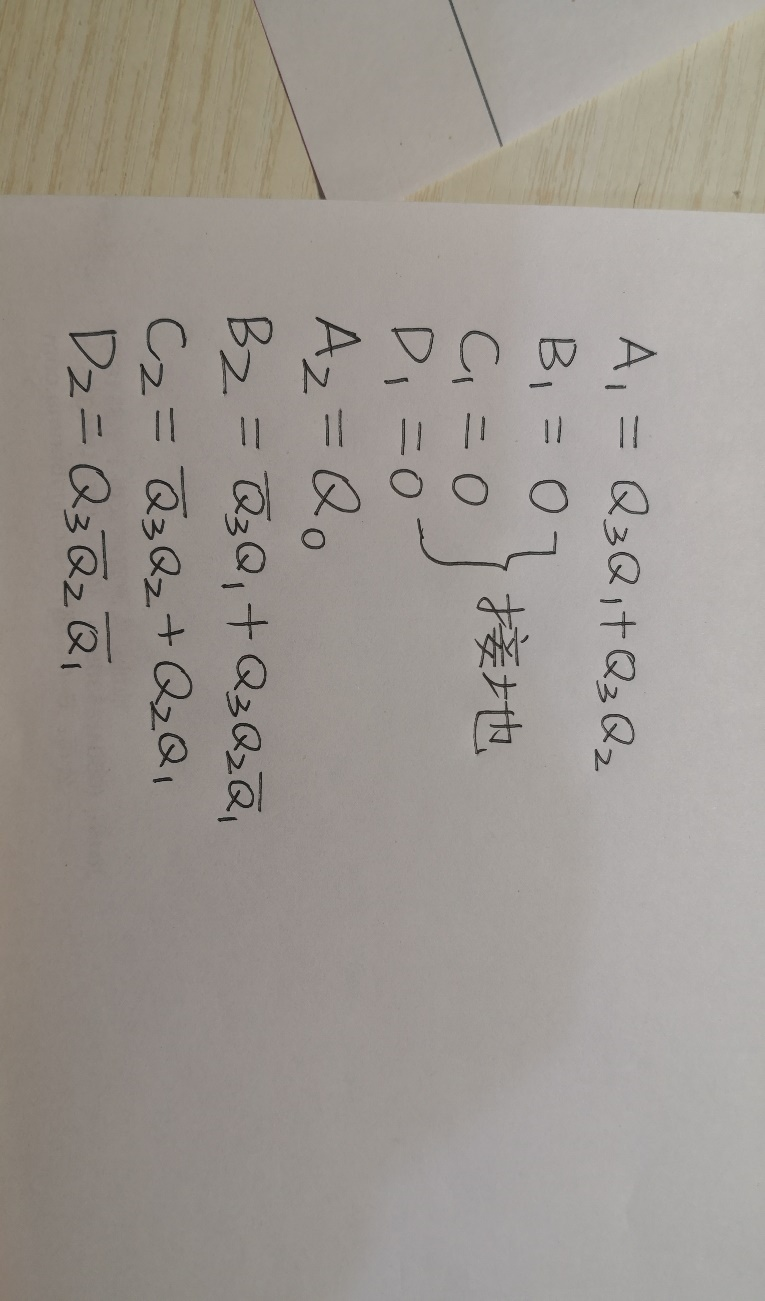 A₁ = Q₃Q₁+Q₃Q₂
B₁ = 0
C₁ = 0 } 接地
D₁ = 0
A₂ = Q₀
B₂ = Q̅₃Q₁+Q₃Q₂Q̅₁
C₂ = Q̅₃Q₂+Q₂Q₁
D₂ = Q₃Q̅₂Q̅₁